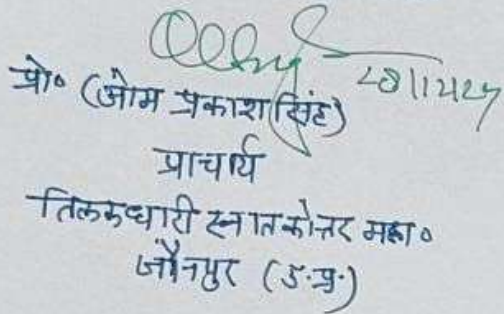 प्रो० (ओम प्रकाश सिंह)
प्राचार्य
तिलकधारी स्नातकोत्तर महा०
जौनपुर (उ.प्र.)